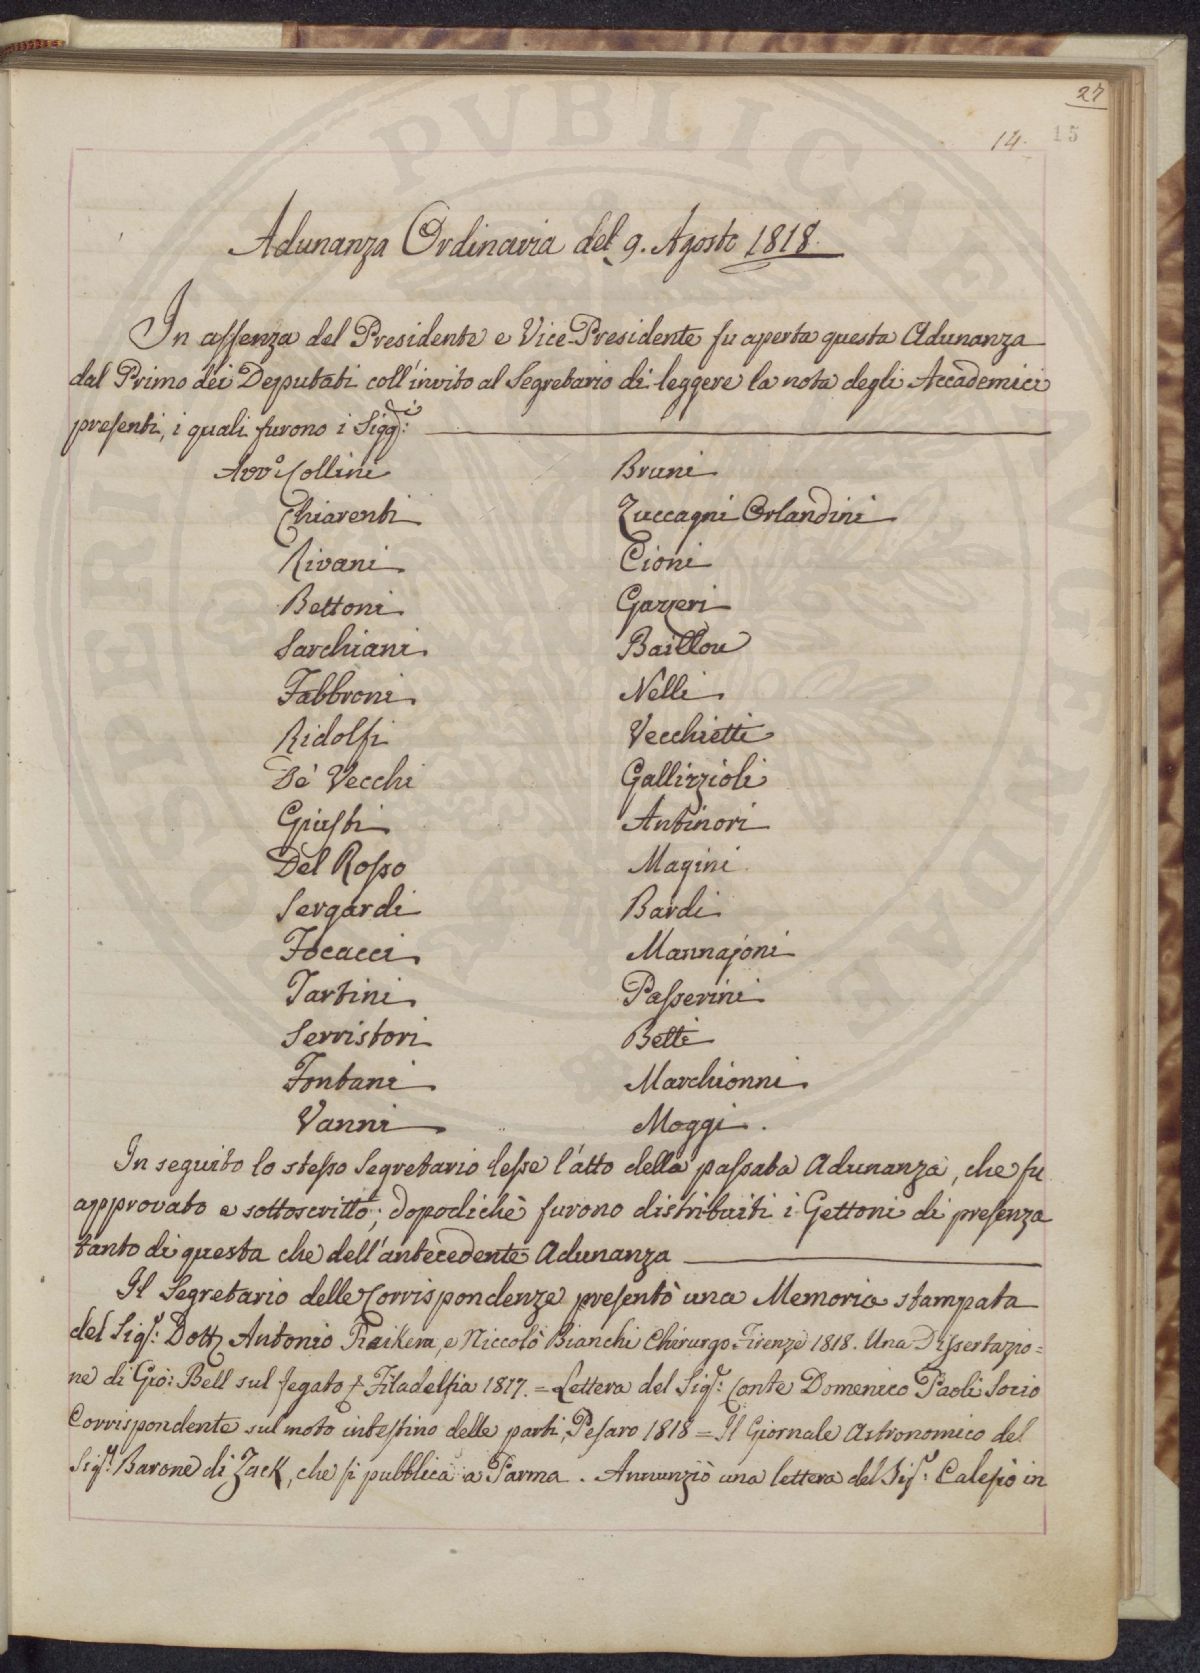 27
14. 15
Adunanza Ordinaria del 9. Agosto 1818.
In assenza del Presidente e Vice-Presidente fu aperta questa Adunanza
dal Primo dei Deputati coll'invito al Segretario di leggere la nota degli Accademici
presenti, i quali furono i Sigg.ri:
Avv.o Collini
Chiarenti
Rivani
Bettoni
Sarchiani
Fabbroni
Ridolfi
De' Vecchi
Giusti
Del Rosso
Sergardi
Focacci
Tartini
Serristori
Fontani
Vanni
Bruni
Zuccagni Orlandini
Cioni
Gazzeri
Baillou
Nelli
Vecchietti
Gallizzioli
Antinori
Magini
Bardi
Mannajoni
Passerini
Betti
Marchionni
Moggi.
In seguito lo stesso Segretario lesse l'atto della passata Adunanza, che fu
approvato e sottoscritto; dopodichè furono distribuiti i Gettoni di presenza
tanto di questa che dell'antecedente Adunanza
Il Segretario delle Corrispondenze presentò una Memoria stampata
del Sig.r: Dott. Antonio e Niccolò Bianchi Chirurgo. Firenze 1818. Una Dissertazio=
ne di Gio: Bell sul fegato Filadelfia 1817. = Lettera del Sig.r: Conte Domenico Paoli Socio
Corrispondente sul moto intestino delle parti, Pesaro 1818 = Il Giornale Astronomico del
Sig.r: Barone di Zack, che si pubblica a Parma. Annunziò una lettera del Sig.r: Calesiò in
PVBLICAE FELICITATI
PROSPERITATI